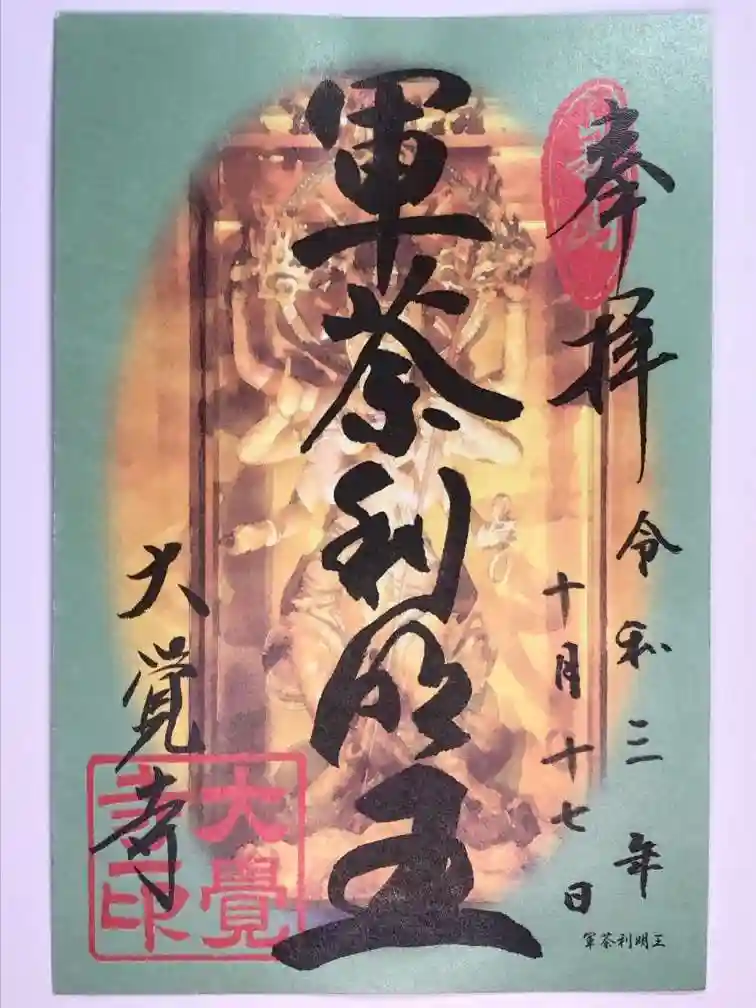 奉拝
令和三年
十月十七日
軍荼利明王
大覺寺
大覺寺印
軍荼利明王